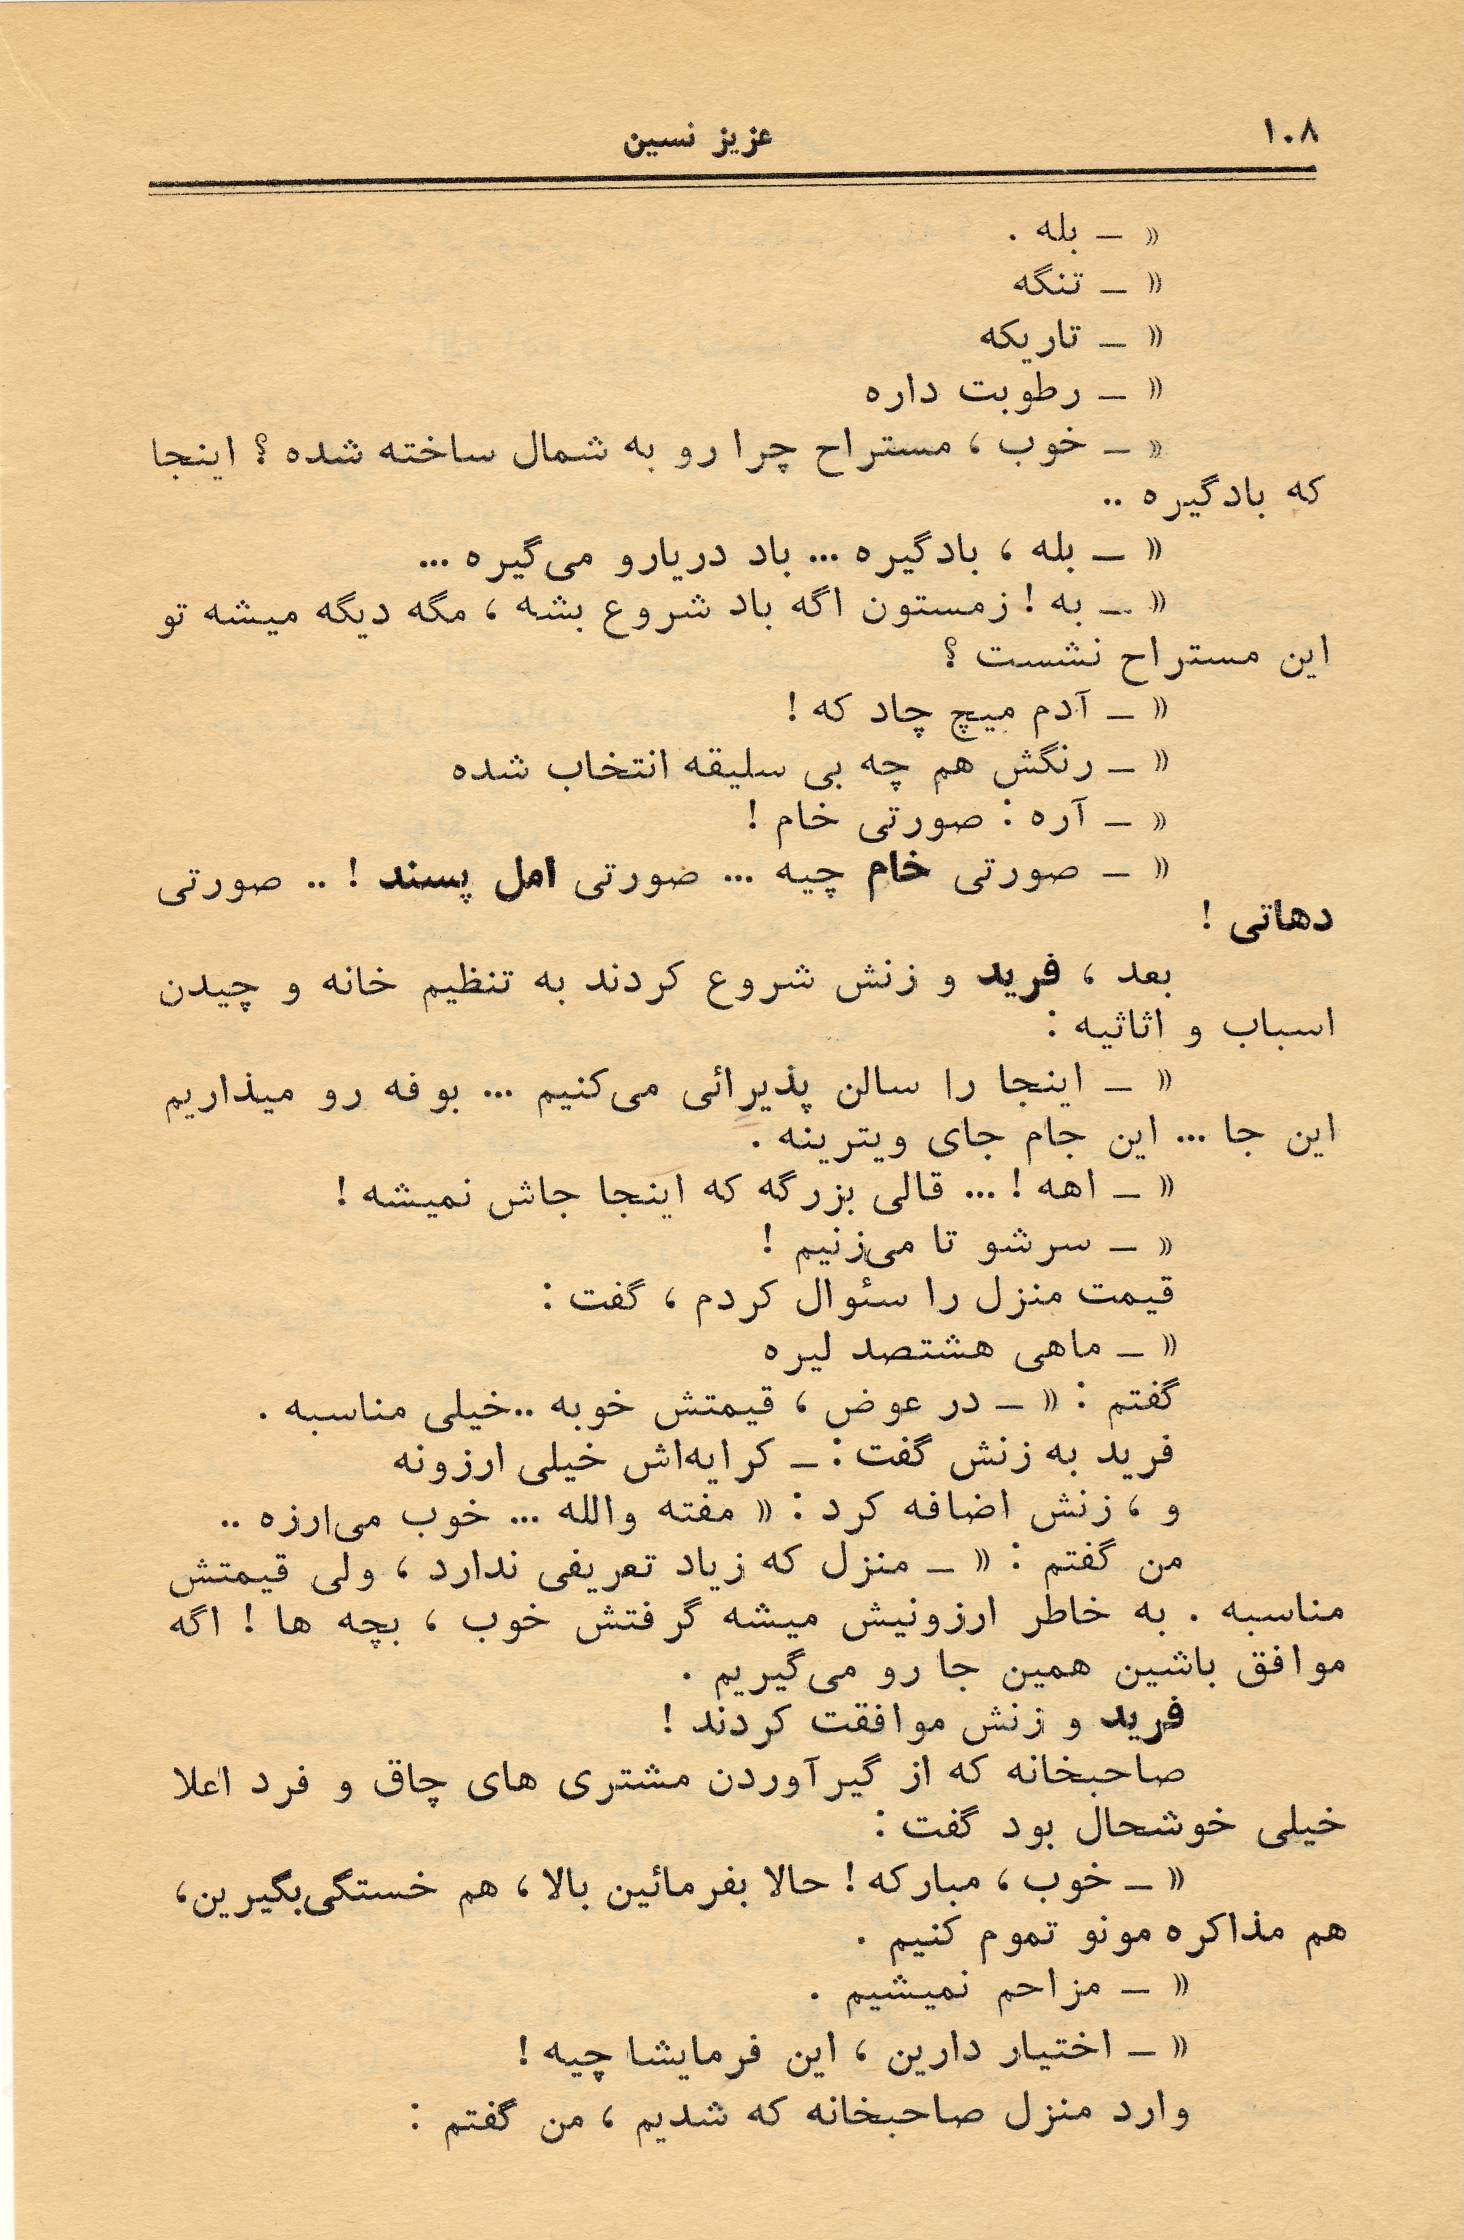 ۱۰۸
عزیز نسین
« ــ بله .
« ــ تنگه
« ــ تاریکه
« ــ رطوبت داره
« ــ خوب ، مستراح چرا رو به شمال ساخته شده ؟ اینجا
که بادگیره ..
« ــ بله ، بادگیره ... باد دریارو می‌گیره ...
« ــ به ! زمستون اگه باد شروع بشه ، مگه دیگه میشه تو
این مستراح نشست ؟
« ــ آدم میچ چاد که !
« ــ رنگش هم چه بی سلیقه انتخاب شده
« ــ آره : صورتی خام !
« ــ صورتی خام چیه ... صورتی امل پسند ! .. صورتی
دهاتی !
بعد ، فرید و زنش شروع کردند به تنظیم خانه و چیدن
اسباب و اثاثیه :
« ــ اینجا را سالن پذیرائی می‌کنیم ... بوفه رو میذاریم
این جا ... این جام جای ویترینه .
« ــ اهه ! ... قالی بزرگه که اینجا جاش نمیشه !
« ــ سرشو تا می‌زنیم !
قیمت منزل را سئوال کردم ، گفت :
« ــ ماهی هشتصد لیره
گفتم : « ــ در عوض ، قیمتش خوبه ..خیلی مناسبه .
فرید به زنش گفت : ــ کرایه‌اش خیلی ارزونه
و ، زنش اضافه کرد : « مفته والله ... خوب می‌ارزه ..
من گفتم : « ــ منزل که زیاد تعریفی ندارد ، ولی قیمتش
مناسبه . به خاطر ارزونیش میشه گرفتش خوب ، بچه ها ! اگه
موافق باشین همین جا رو می‌گیریم .
فرید و زنش موافقت کردند !
صاحبخانه که از گیرآوردن مشتری های چاق و فرد اعلا
خیلی خوشحال بود گفت :
« ــ خوب ، مبارکه ! حالا بفرمائین بالا ، هم خستگی‌بگیرین،
هم مذاکره مونو تموم کنیم .
« ــ مزاحم نمیشیم .
« ــ اختیار دارین ، این فرمایشا چیه !
وارد منزل صاحبخانه که شدیم ، من گفتم :